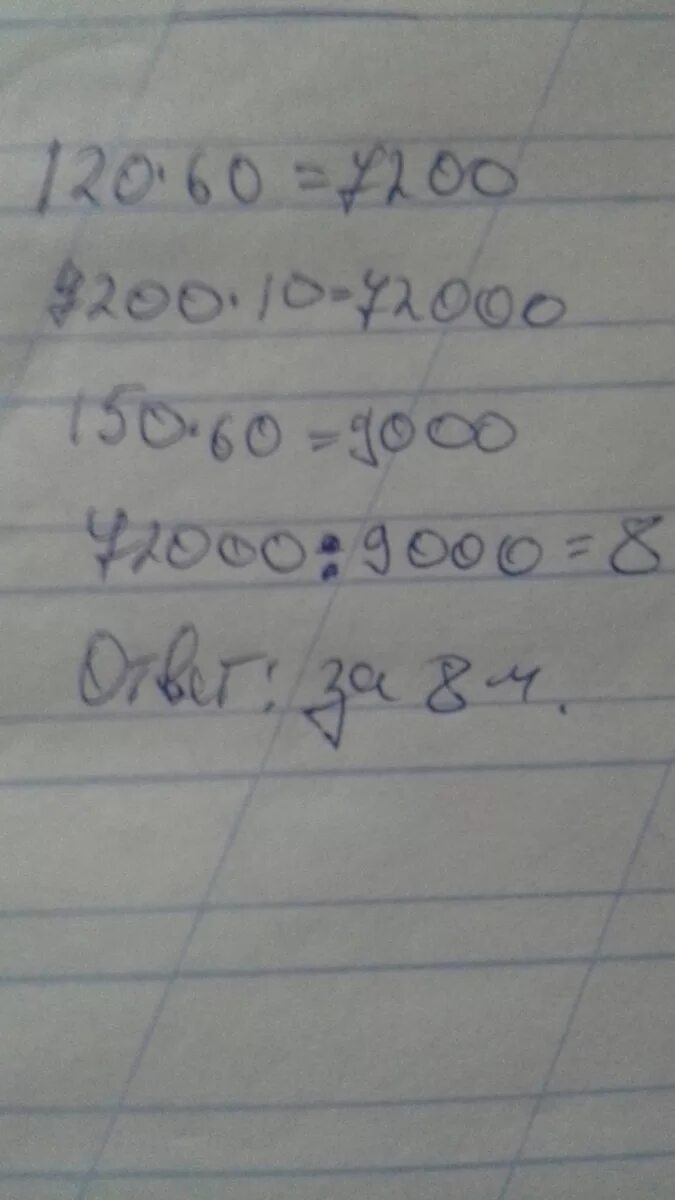 120·60=7200
7200·10=72000
150·60=9000
72000:9000=8
Ответ: за 8 м.